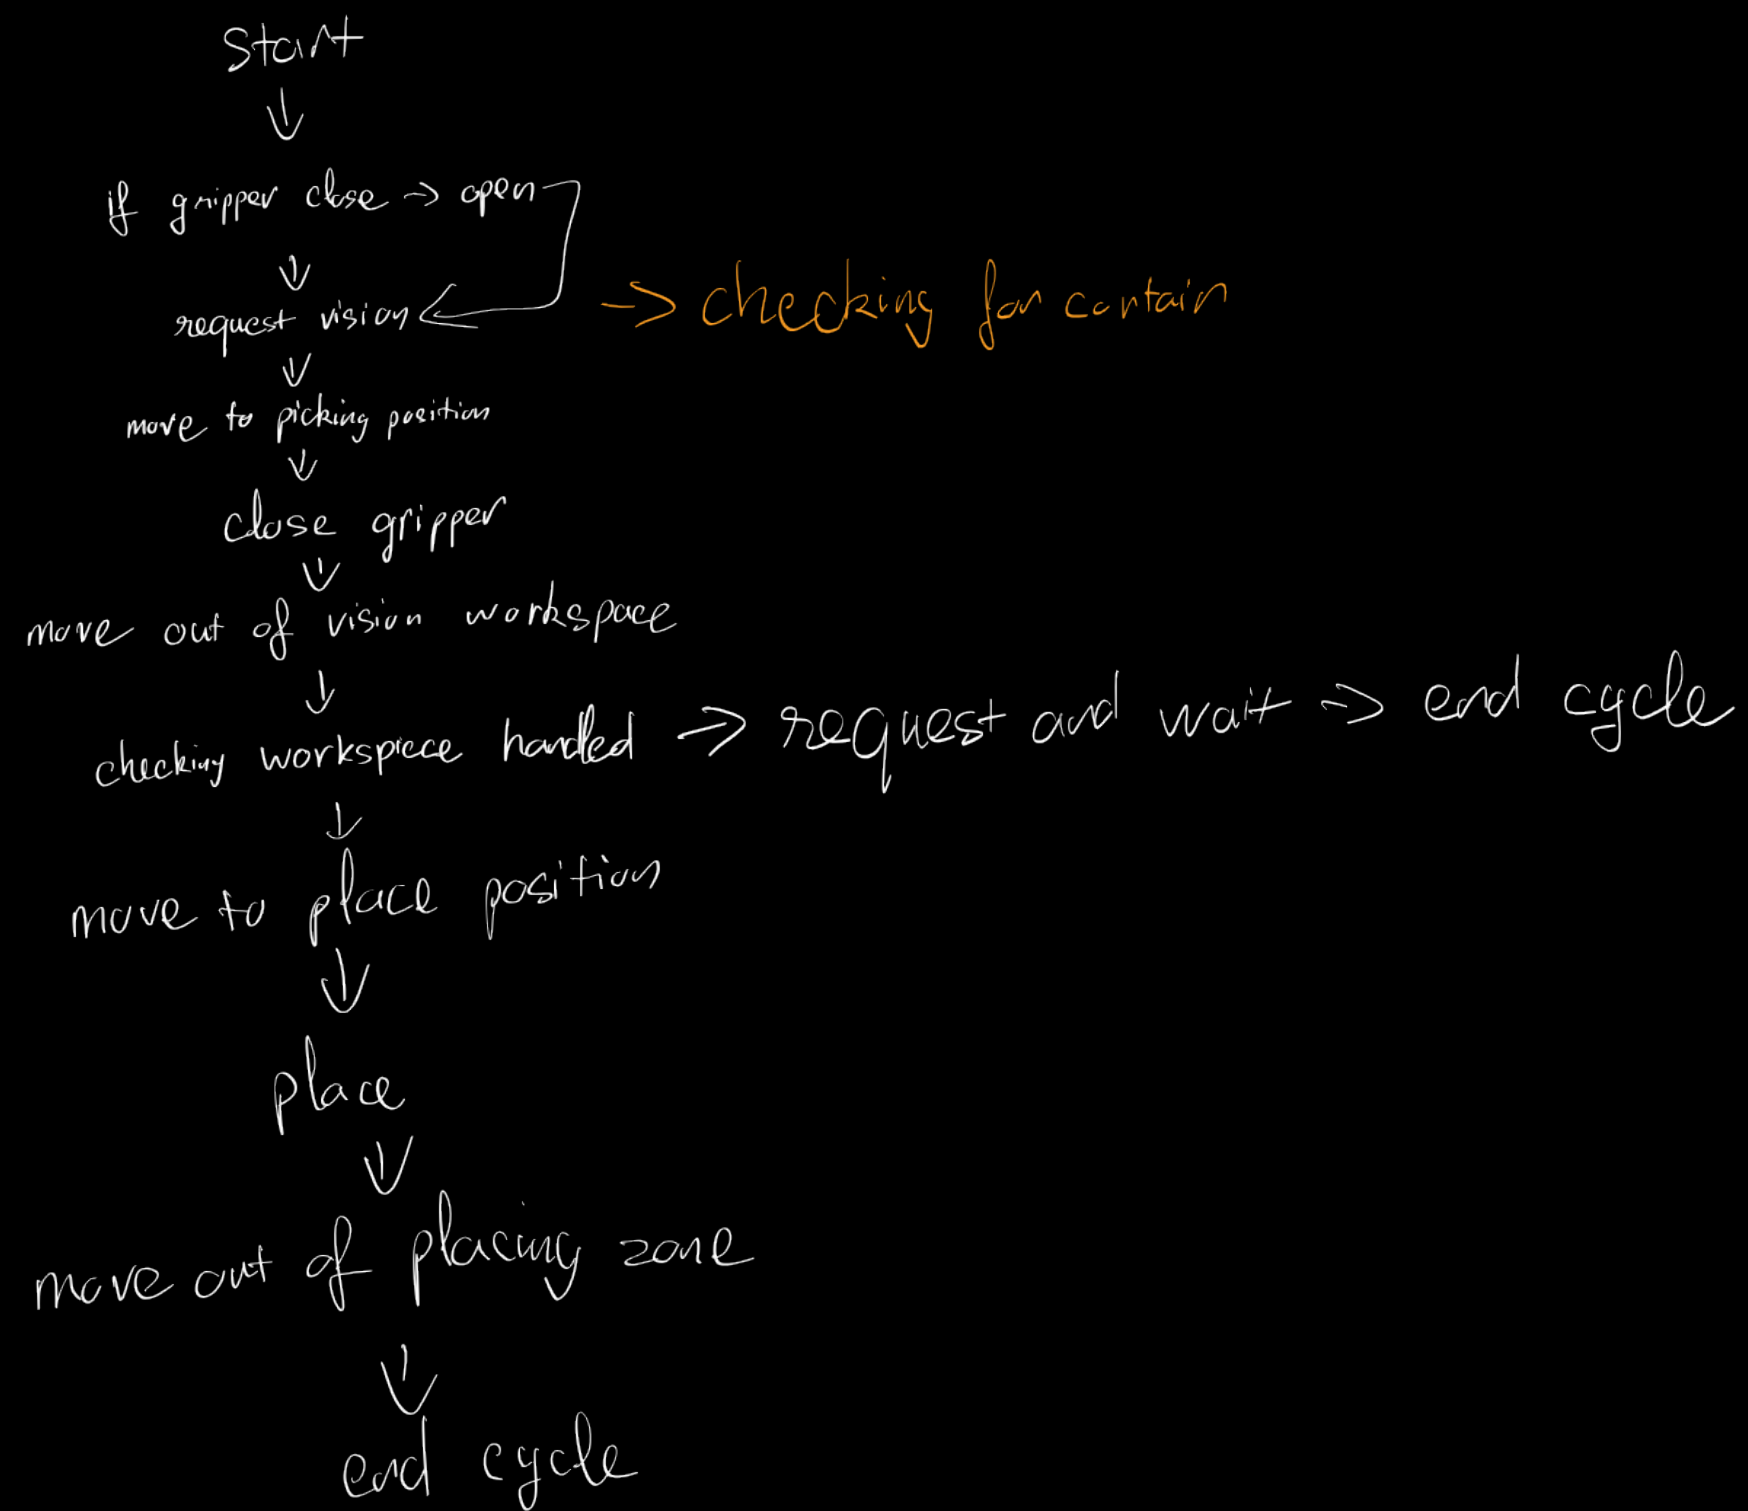 Start
↓
if gripper close → open
↓
request vision → checking for certain
↓
move to picking position
↓
close gripper
↓
move out of vision workspace
↓
checking workspiece handled → request and wait → end cycle
↓
move to place position
↓
place
↓
move out of placing zone
↓
end cycle